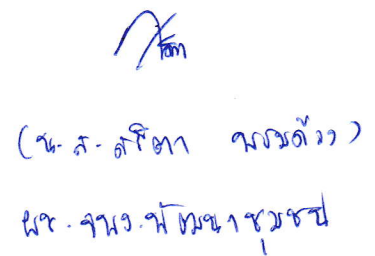 (น.ส. สริตา พรมด้วง)
ผช. จพง. พัฒนาชุมชน